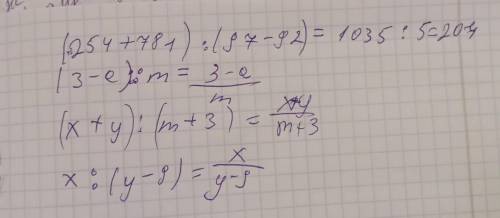 (254+781):(97-92)=1035:5=207
(3-a):m=\frac{3-a}{m}
(x+y):(m+3)=\frac{x+y}{m+3}
x:(y-9)=\frac{x}{y-9}